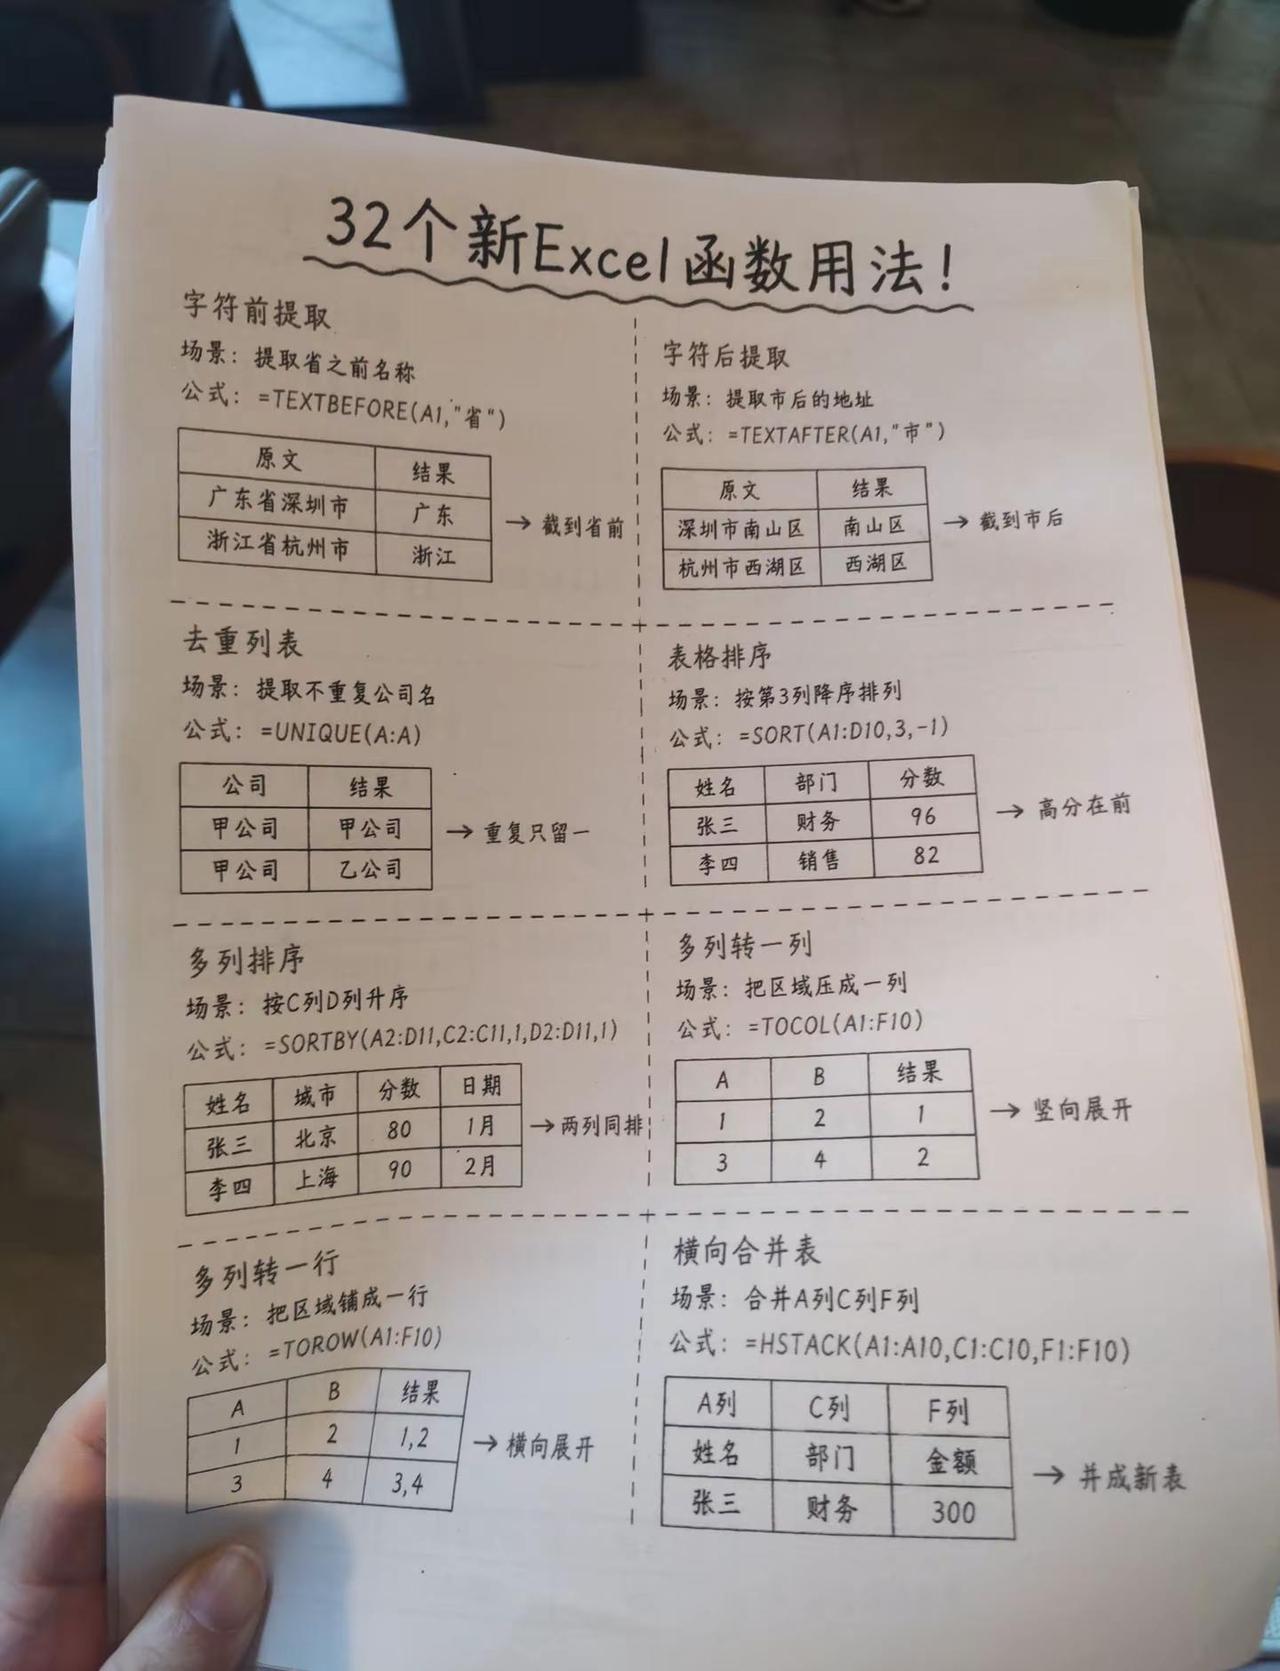 32个新Excel函数用法！
字符前提取
场景：提取省之前名称
公式：=TEXTBEFORE(A1,"省")
原文 结果
广东省深圳市 广东
浙江省杭州市 浙江
→ 截到省前
字符后提取
场景：提取市后的地址
公式：=TEXTAFTER(A1,"市")
原文 结果
深圳市南山区 南山区
杭州市西湖区 西湖区
→ 截到市后
去重列表
场景：提取不重复公司名
公式：=UNIQUE(A:A)
公司 结果
甲公司 甲公司
甲公司 乙公司
→ 重复只留一
表格排序
场景：按第3列降序排列
公式：=SORT(A1:D10,3,-1)
姓名 部门 分数
张三 财务 96
李四 销售 82
→ 高分在前
多列排序
场景：按C列D列升序
公式：=SORTBY(A2:D11,C2:C11,1,D2:D11,1)
姓名 城市 分数 日期
张三 北京 80 1月
李四 上海 90 2月
→两列同排
多列转一列
场景：把区域压成一列
公式：=TOCOL(A1:F10)
A B 结果
1 2 1
3 4 2
→ 竖向展开
多列转一行
场景：把区域铺成一行
公式：=TOROW(A1:F10)
A B 结果
1 2 1,2
3 4 3,4
→ 横向展开
横向合并表
场景：合并A列C列F列
公式：=HSTACK(A1:A10,C1:C10,F1:F10)
A列 C列 F列
姓名 部门 金额
张三 财务 300
→ 并成新表